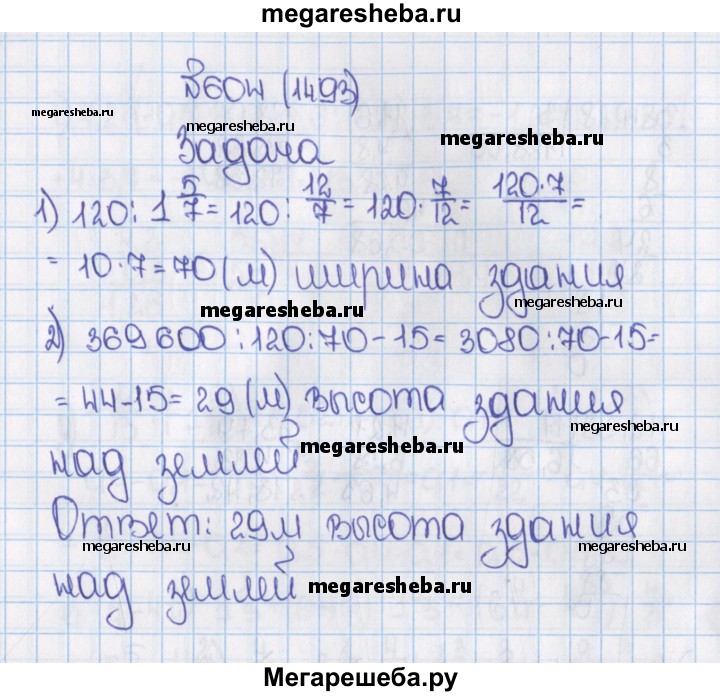 megaresheba.ru
№604 (1493)
megaresheba.ru
megaresheba.ru
megaresheba.ru
Задача
1) 120 : 1 5/7 = 120 : 12/7 = 120 · 7/12 = 120·7/12 =
= 10·7 = 70 (м) ширина здания
megaresheba.ru
megaresheba.ru
2) 369 600 : 120 : 70 - 15 = 3080 : 70 - 15 =
= 44 - 15 = 29 (м) высота здания
megaresheba.ru
над землей
megaresheba.ru
Ответ: 29м высота здания
megaresheba.ru
megaresheba.ru
над землей
megaresheba.ru
Мегарешеба.ру